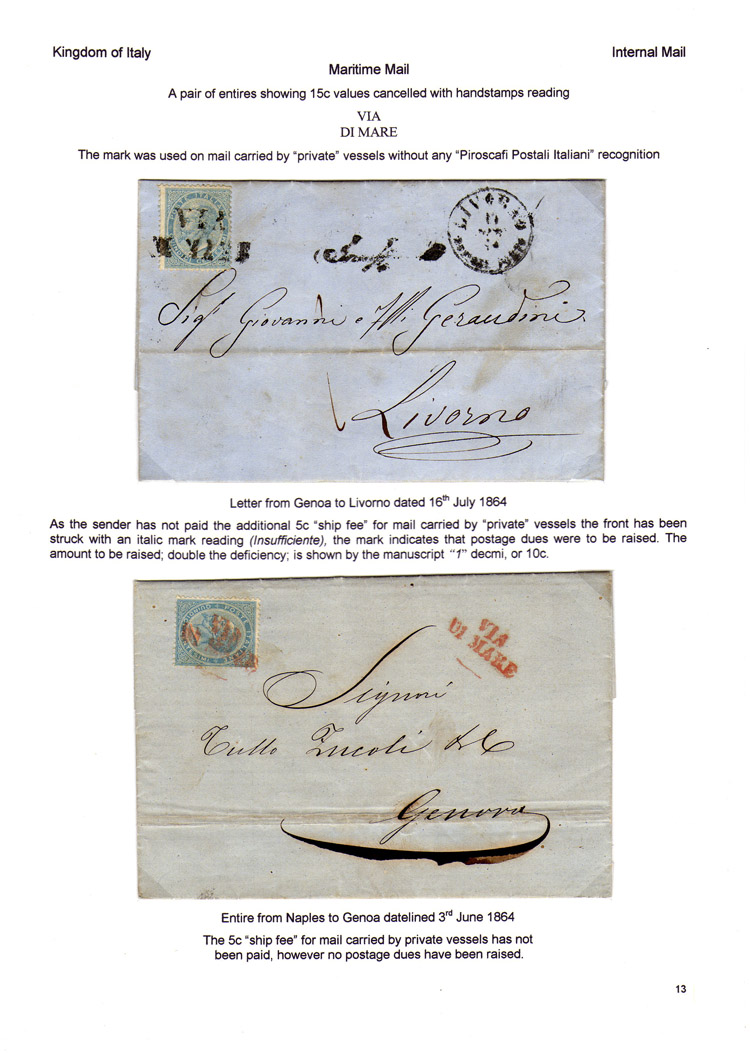 Kingdom of Italy
Internal Mail
Maritime Mail
A pair of entires showing 15c values cancelled with handstamps reading
VIA
DI MARE
The mark was used on mail carried by “private” vessels without any “Piroscafi Postali Italiani” recognition
VIA
MARE
LIVORNO
Sigri Giovanni e Flli Geraudini
1
Livorno
Letter from Genoa to Livorno dated 16th July 1864
As the sender has not paid the additional 5c “ship fee” for mail carried by “private” vessels the front has been
struck with an italic mark reading (Insufficiente), the mark indicates that postage dues were to be raised. The
amount to be raised; double the deficiency; is shown by the manuscript “1” decmi, or 10c.
POSTE
VIA
DI MARE
Signori
Tullo Zucoli & C
Genova
Entire from Naples to Genoa datelined 3rd June 1864
The 5c “ship fee” for mail carried by private vessels has not
been paid, however no postage dues have been raised.
13